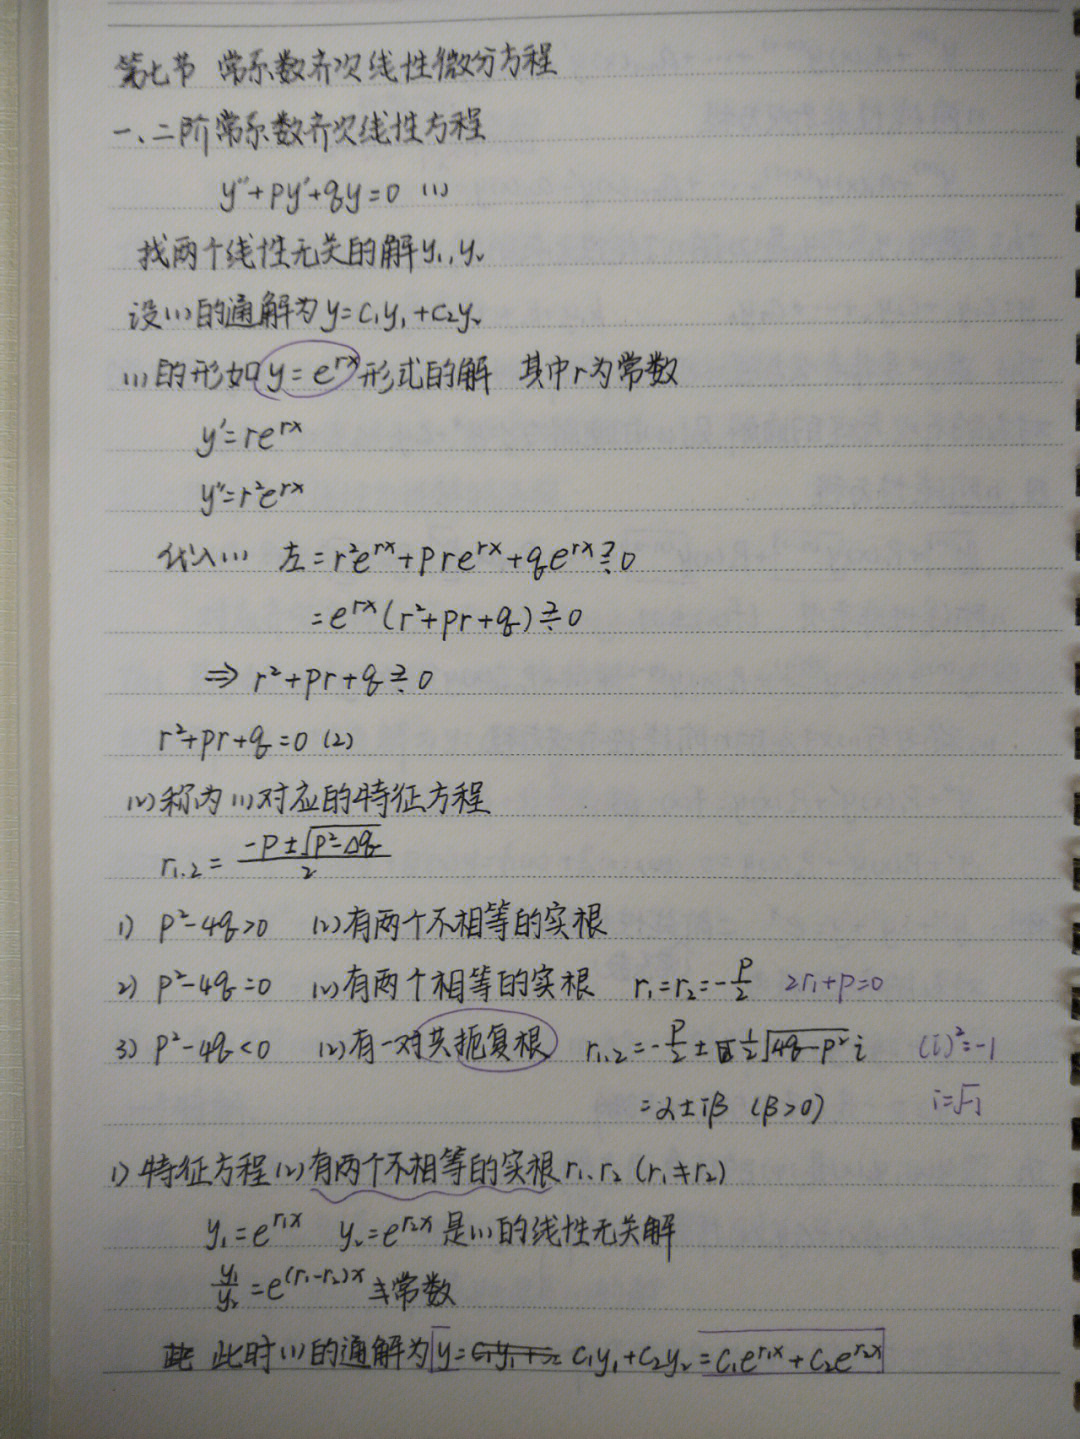 第七节 常系数齐次线性微分方程
一、二阶常系数齐次线性方程
y''+py'+qy=0 (1)
找两个线性无关的解y₁,y₂
设(1)的通解为y=C₁y₁+C₂y₂
(1)的形如y=e^{rx}形式的解 其中r为常数
y'=re^{rx}
y''=r²e^{rx}
代入(1) 左=r²e^{rx}+pre^{rx}+qe^{rx}≟0
=e^{rx}(r²+pr+q)≟0
⇒ r²+pr+q≟0
r²+pr+q=0 (2)
(2)称为(1)对应的特征方程
r₁,₂=(-p±√(p²-△q))/2
1) p²-4q>0 (2)有两个不相等的实根
2) p²-4q=0 (2)有两个相等的实根 r₁=r₂=-p/2 2r₁+p=0
3) p²-4q<0 (2)有一对共扼复根 r₁,₂=-p/2±1/2√(4q-p²)i (i)²=-1
=α±iβ (β>0) i=√-1
1) 特征方程(2)有两个不相等的实根r₁、r₂ (r₁≠r₂)
y₁=e^{r₁x} y₂=e^{r₂x}是(1)的线性无关解
y₁/y₂=e^{(r₁-r₂)x}≢常数
此时(1)的通解为y=C₁y₁+C₂y₂=C₁e^{r₁x}+C₂e^{r₂x}